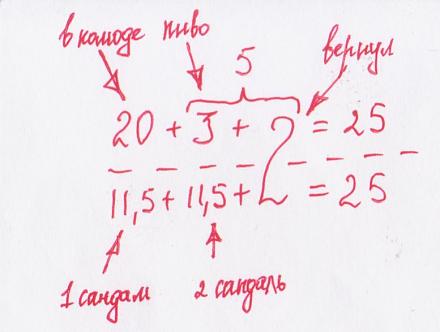 в комоде пиво
5
вернул
20 + 3 + 2 = 25
11,5 + 11,5 + 2 = 25
1 сандаль 2 сандаль